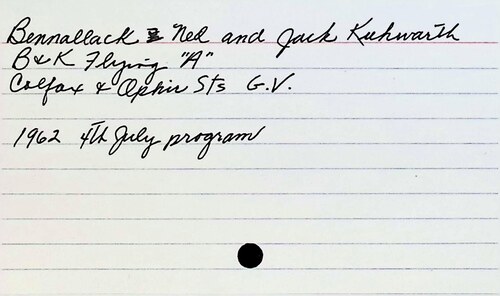 Bennallack Ned and Jack Kuhwarth
B & K Flying "A"
Colfax & Ophir Sts G.V.
1962 4th July program